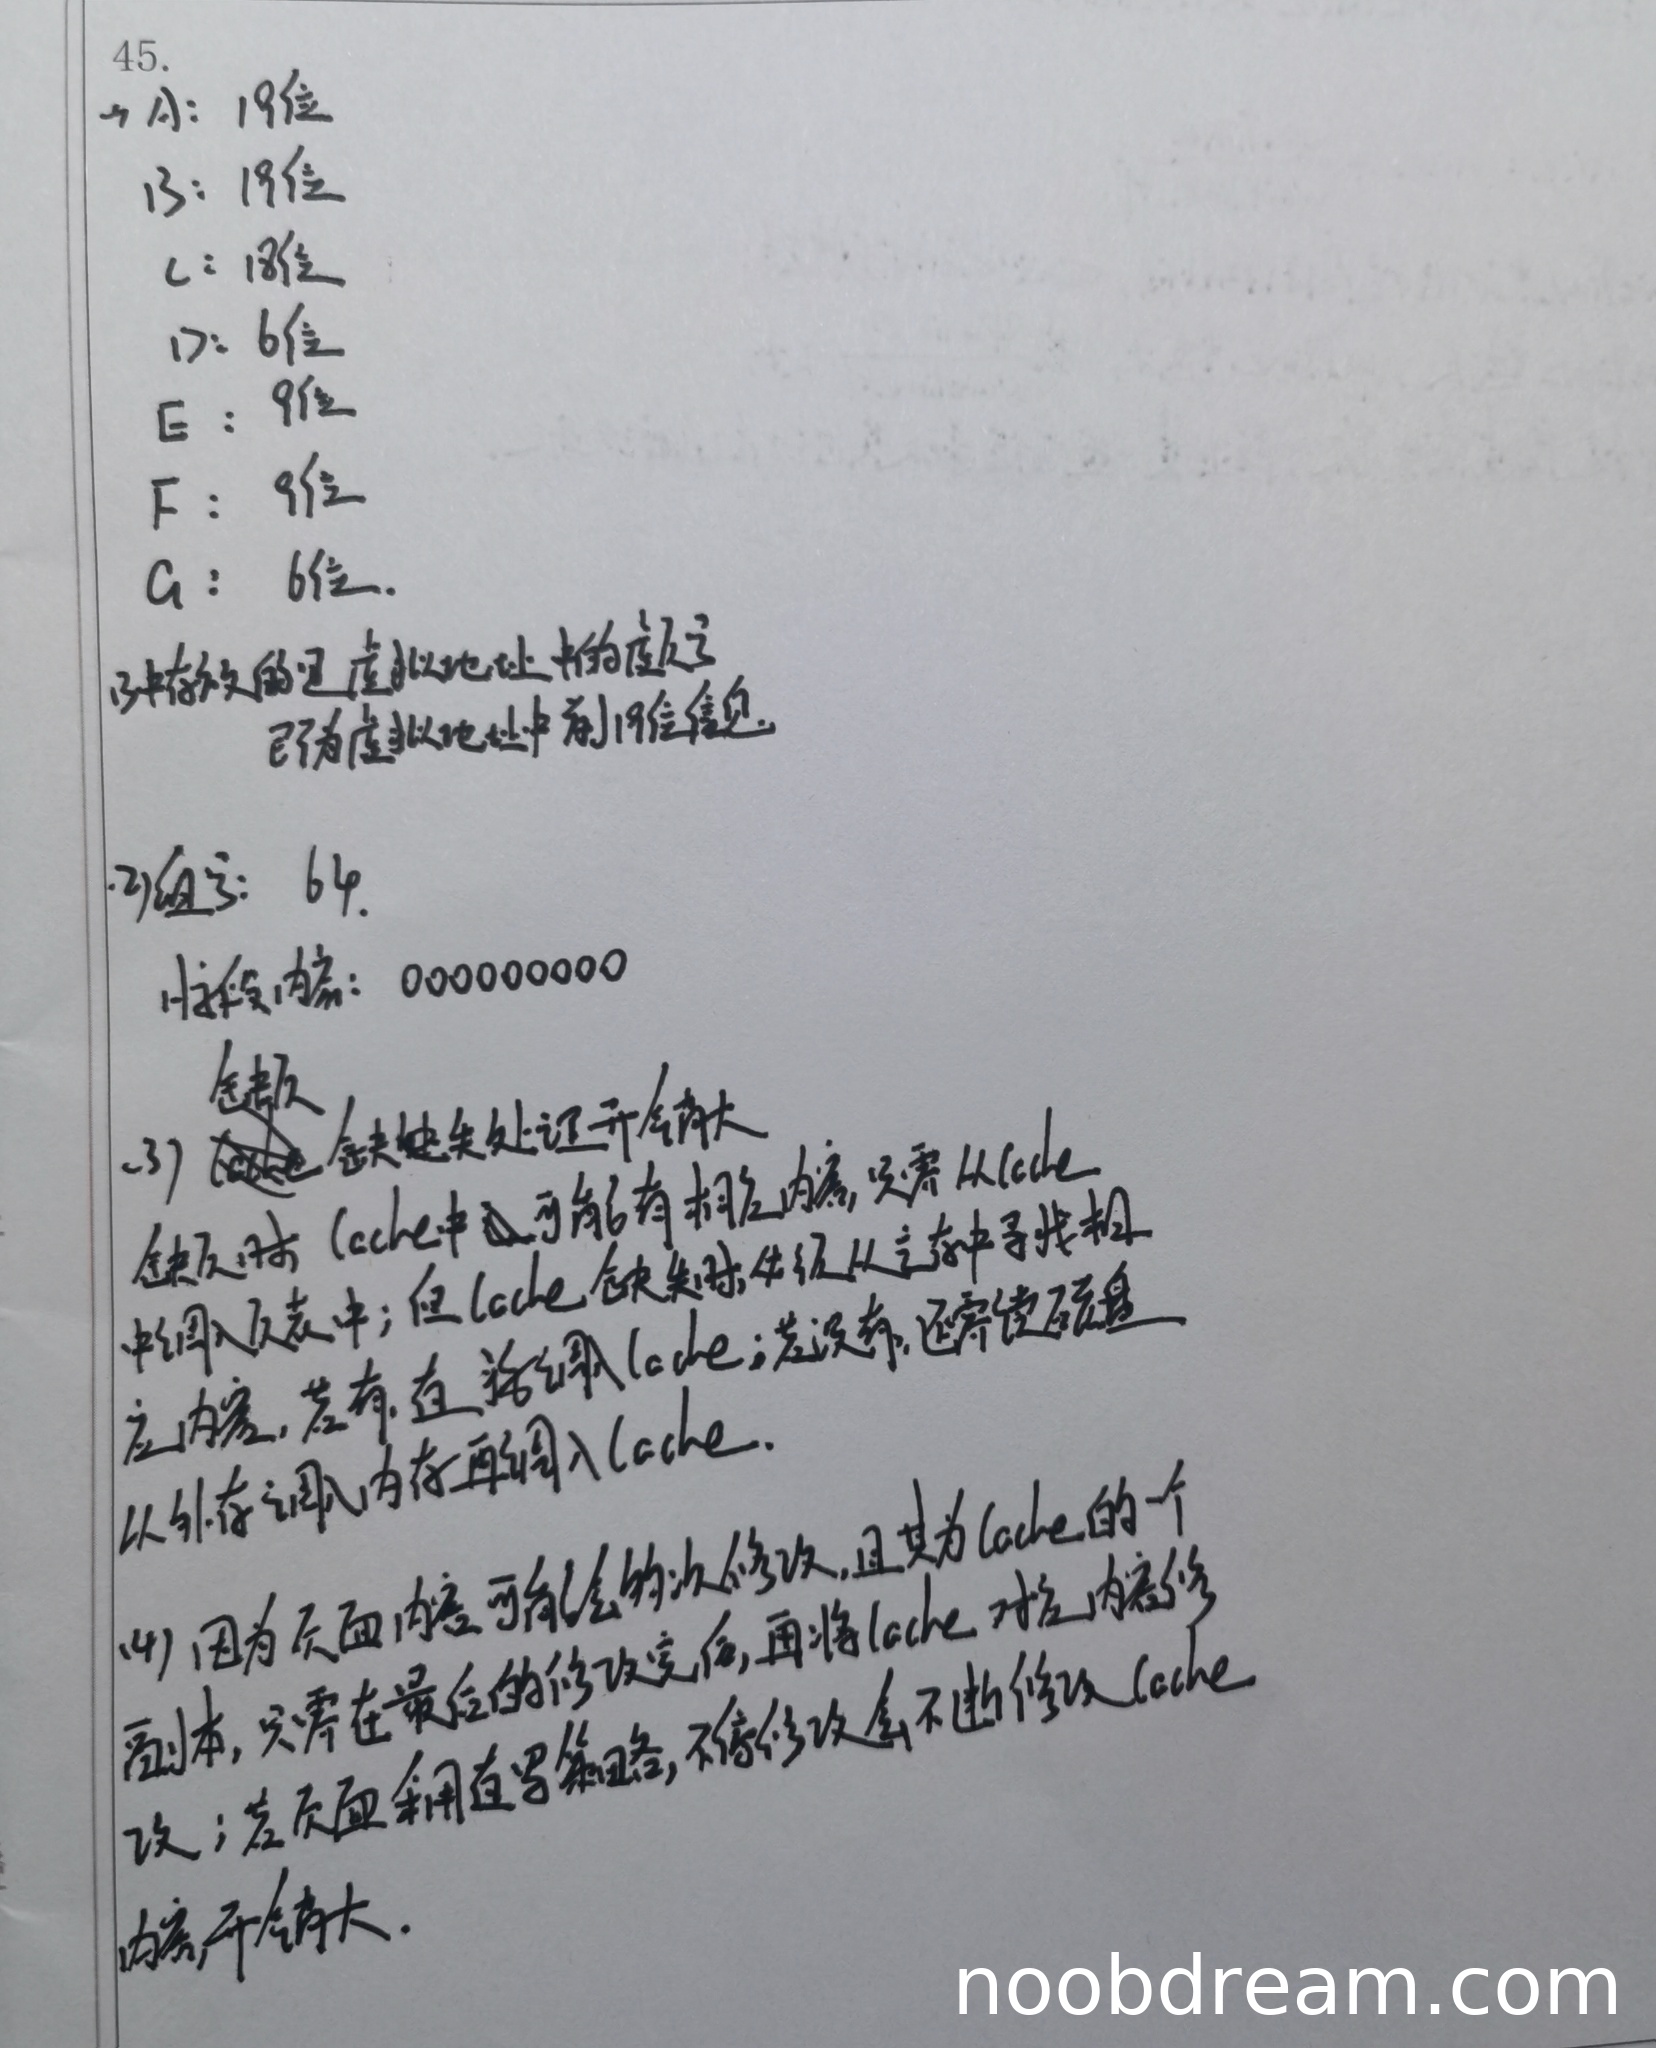 45.
(1) A: 19位
B: 19位
C: 18位
D: 6位
E: 9位
F: 9位
G: 6位.
B中存放的是虚拟地址中的虚页号
即为虚拟地址中前19位信息.
(2)组号: 64.
H字段内容: 000000000
缺页
(3) 缺失处理开销大
缺页时Cache中可能有相应内容,只需从Cache
中调入页表中;但Cache缺失时,必须从主存中寻找相
应内容,若有,直接调入Cache;若没有,还需读磁盘
从外存调入内存再调入Cache.
(4) 因为页面内容可能会多次修改,且其为Cache的一个
副本,只需在最后的修改完后,再将Cache对应内容修
改;若页面采用直写策略,不停修改会不断修改Cache
内容,开销大.
noobdream.com